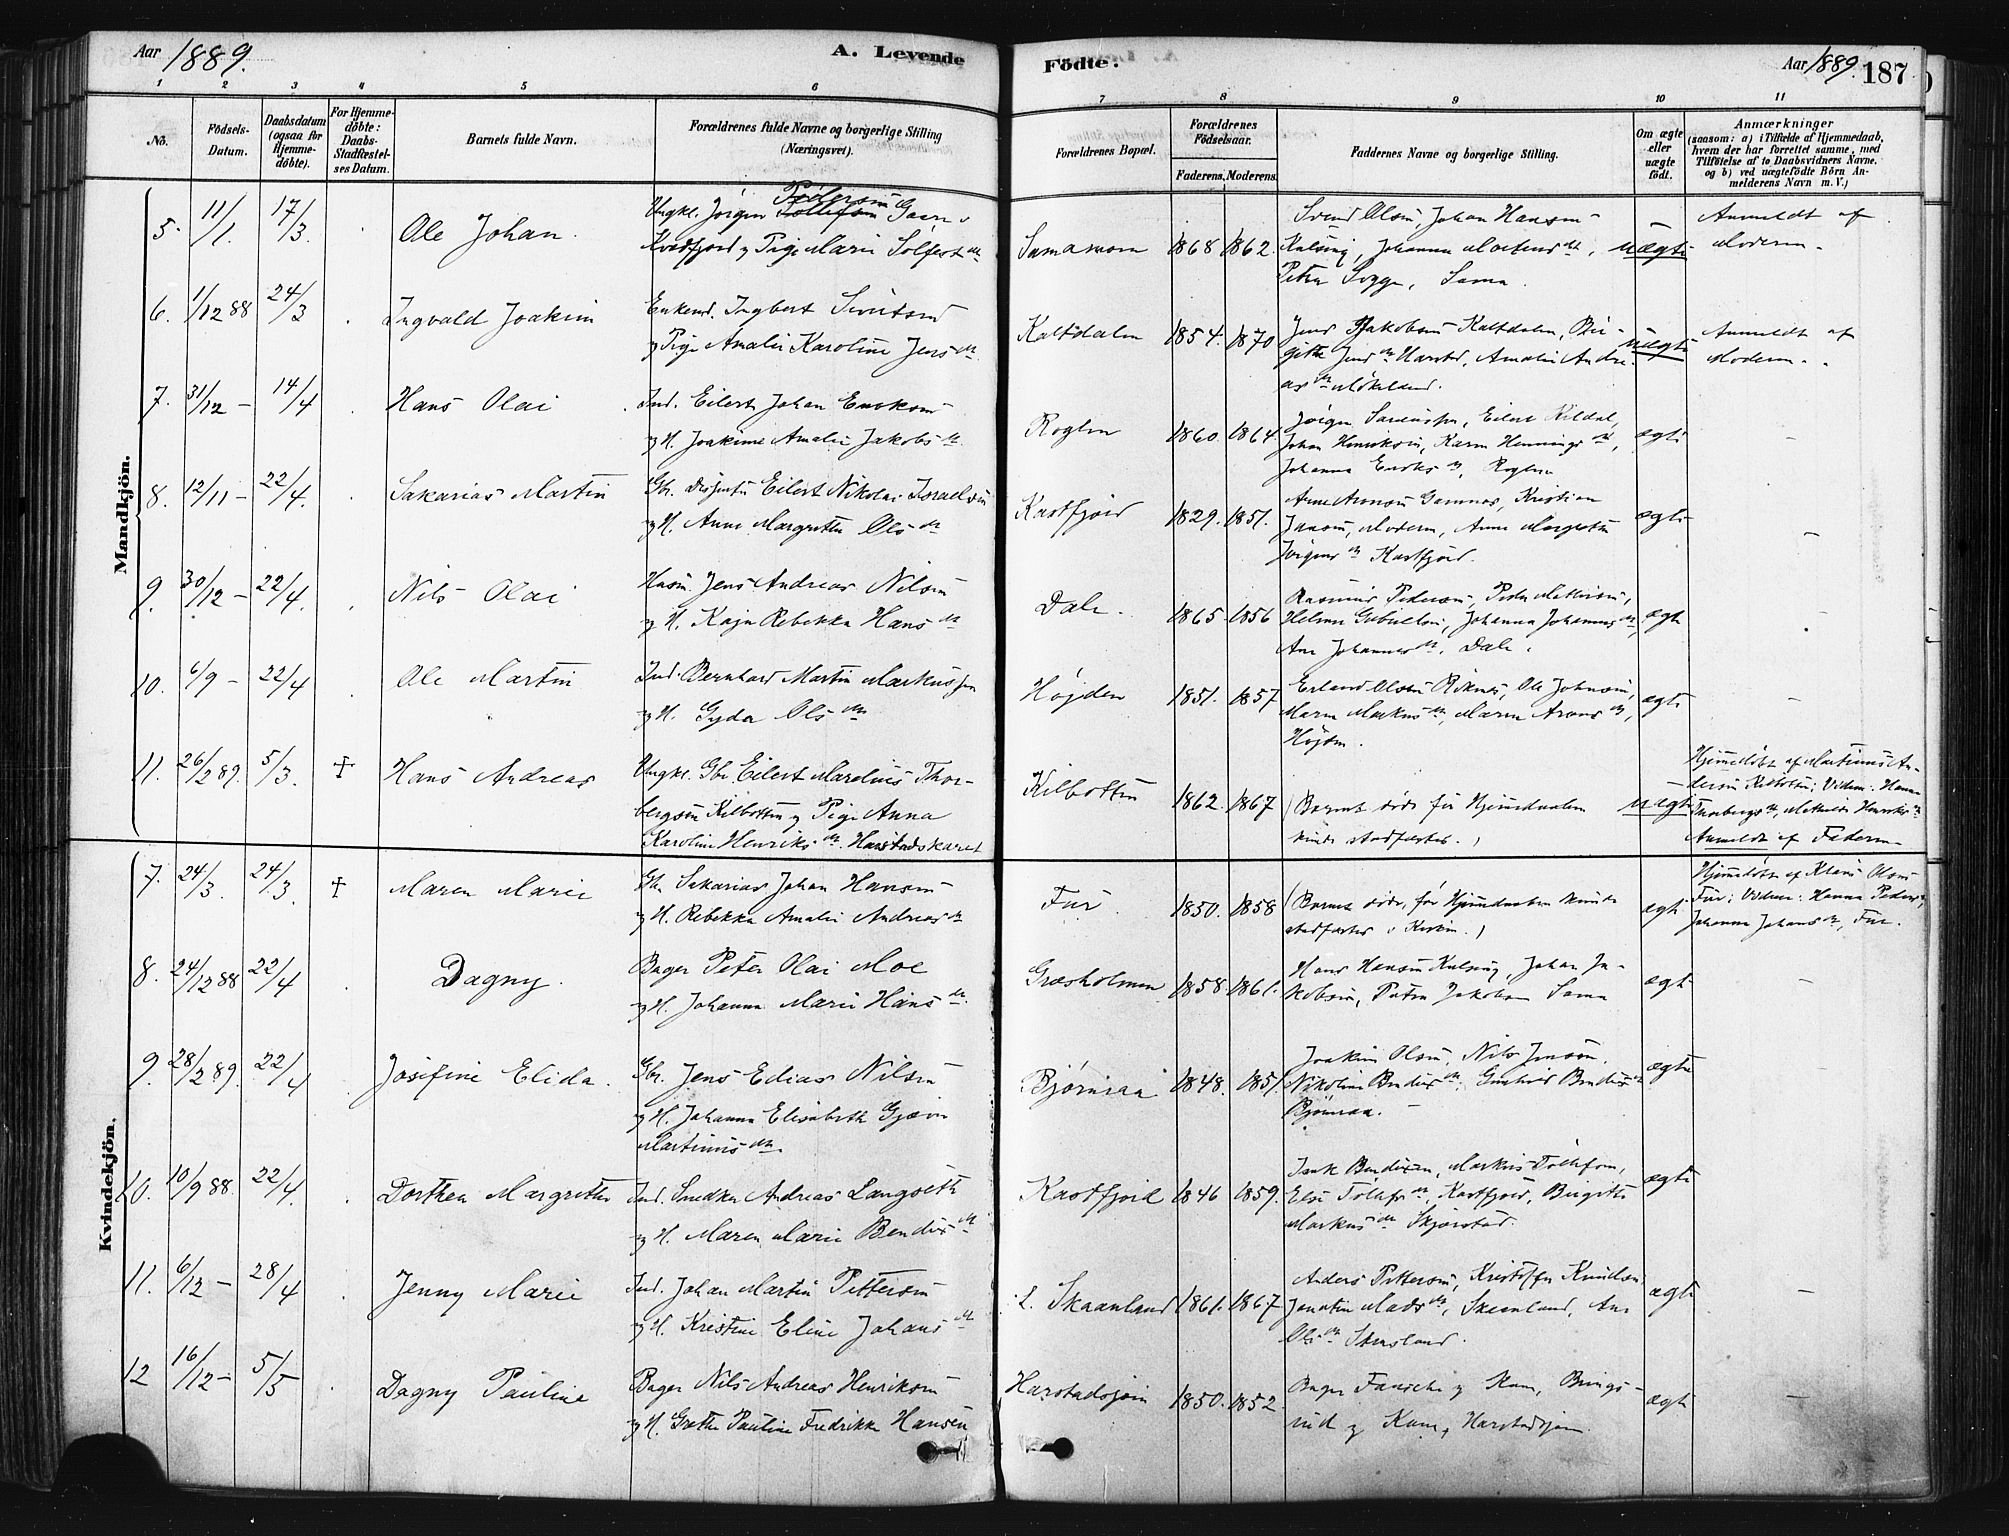 Aar 1889.
A. Levende Födte.
Aar 1889. 187
1 2 3 4 5 6 7 8 9 10 11
No.
Födsels-Datum.
Daabsdatum (ogsaa for Hjemme-döbte).
For Hjemme-döbte: Daabs-Stadfæstel-ses Datum.
Barnets fulde Navn.
Forældrenes fulde Navne og borgerlige Stilling (Næringsvei).
Forældrenes Bopæl.
Forældrenes Födselsaar.
Faderens. Moderens.
Faddernes Navne og borgerlige Stilling.
Om ægte eller uægte födt.
Anmærkninger
(saasom: a) i Tilfælde af Hjemmedaab,
hvem der har forrettet samme, med
Tilföielse af to Daabsvidners Navne.
og b) ved uægtefödte Börn An-
melderens Navn m. V.)
Mandkjön.
5. 11/1. 17/3. Ole Johan.
Ungk. Jörgen Pedersen
Kvedfjord og Pige Marie
1868 1862.
Svend Olsen, Johan Hansen
Kulseng, Johanna
Petra Sama.
uægte
Anmeldt af
Moderen.
6. 1/12 88 24/3 Ingvald Joakim
Enkemd. Ingbert Sivertsen
og Pige Amalie Karoline Jensdtr
Kaltdalen 1854. 1870
Jens Jakobsen Kaltdalen, Bir-
gitte Jensdtr Harstad, Amalie Andre-
asdtr Mökeland.
uægte
Anmeldt af
Moderen.
7. 31/12 - 14/4 Hans Olai
Ind. Eilert Johan Enoksen
og H. Joakime Amalie Jakobsdtr
Roglen 1860. 1864.
Jörgen Eilert Kildal,
Johan Henriksen, Karen Henningsdtr,
Johanna Enoksdtr, Roglen
ægte -
8. 12/11 - 22/4. Sakarias Martin
Gbr. Eilert Nikolai Israelsen
og H. Anne Margrethe Olsdtr
Kastfjord 1829. 1851.
Arne Aronsen Gamnes, Kristian
Jensen, Moderen, Anne Margrethe
Jörgensdtr Kastfjord.
ægte -
9. 30/12 - 22/4. Nils Olai
Husm. Jens Andreas Nilsen
og H. Kaja Rebekka Hansdtr
Dale. 1865. 1856
Rasmus Pedersen, Peder
Johanna Johannesdtr,
Ane Johannesdtr, Dale.
ægte -
10. 6/9 - 22/4 Ole Martin
Ind. Bernhard Martin Markussen
og H. Gyda Olsdtr
Höjden 1851. 1857
Erland Olsen Röknes, Ole Johnsen,
Maren Markusdtr, Maren Aronsdtr,
Höjden.
ægte -
11. 26/2 89. 5/3. † Hans Andreas
Ungk. Gbr. Eilert Marelius Thor-
bergsen Kilbotten og Pige Anna
Karoline Henriksdtr Harstadskaret
Kilbotten 1862. 1867
(Barnet döde för Hjemmedaaben
kunde stadfæstes.)
uægte
Hjemmedöbt af Martinus An-
dersen Kilbotten; Vidner: Hanna
Thorbergsdtr, Mathilde Henriksdtr
Anmeldt af Faderen
Kvindekjön.
7. 24/3 24/3. † Maren Marie
Gbr Sakarias Johan Hansen
og H. Rebekka Amalie Andreasdtr
Fur. 1850. 1858
(Barnet döde, för Hjemmedaaben kunde
stadfæstes i Kirken.)
ægte
Hjemmedöbt af Olsen
Fur; Vidner: Hanna Pedersdtr,
Johanna Johansdtr, Fur.
8. 24/12 88 22/4 Dagny.
Bager Peter Olai Moe
og H. Johanna Marie Hansdtr.
Græsholmen 1858. 1861.
Hans Hansen Kulseng, Johan Ja-
kobsen, Petra Jakobsen Sama
ægte -
9. 28/2 89. 22/4 Josefine Elida.
Gbr. Jens Edias Nilsen
og H. Johanna Elisabeth Gjæver
Martinusdtr.
Björnraa 1848. 1851.
Joakim Olsen, Nils Jensen.
Nikoline Bendixdtr, Gunhild Bendixdtr
Björnraa. -
ægte
10. 10/9 88. 22/4. Dorthea Margrethe
Ind. Snedker Andreas Langseth
og H. Maren Marie Bendixdtr
Kastfjord 1846 1859.
Isak Bendixen, Markus Tollefsen,
Else Tollefsdtr, Kastfjord, Birgitte
Markusdtr Skjærstad.
ægte
11. 6/12 - 28/4 Jenny Marie
Ind. Johan Martin Pettersen
og H. Kristine Eline Johansdtr
L. Skaanland 1861. 1867
Anders Pettersen, Kristoffer Knudsen,
Jonetta Madsdtr, Skaanland, Ane
Olsdtr
ægte -
12 16/12 - 5/5 Dagny Pauline
Bager Nils Andreas Henriksen
og H. Grethe Pauline Fredrikke Hansen
Harstadsjöen 1850. 1852.
Bager og Kone, Brings-
rud og Kone, Harstadsjöen.
ægte -